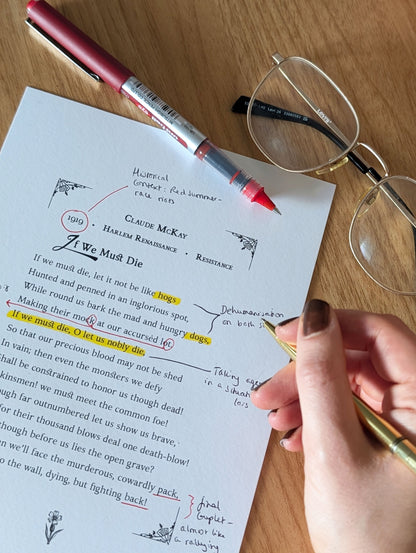 Historical
Context: Red summer -
race riots
1919 • CLAUDE MCKAY
HARLEM RENAISSANCE • RESISTANCE
If We Must Die
If we must die, let it not be like hogs
Hunted and penned in an inglorious spot,
While round us bark the mad and hungry dogs,
Making their mock at our accursed lot.
If we must die, O let us nobly die,
So that our precious blood may not be shed
In vain; then even the monsters we defy
Shall be constrained to honor us though dead!
kinsmen! we must meet the common foe!
ough far outnumbered let us show us brave,
for their thousand blows deal one death-blow!
though before us lies the open grave?
en we'll face the murderous, cowardly pack,
to the wall, dying, but fighting back!
Dehumanisation
on both
Taking
in a
final
Couplet -
almost like
a rallying